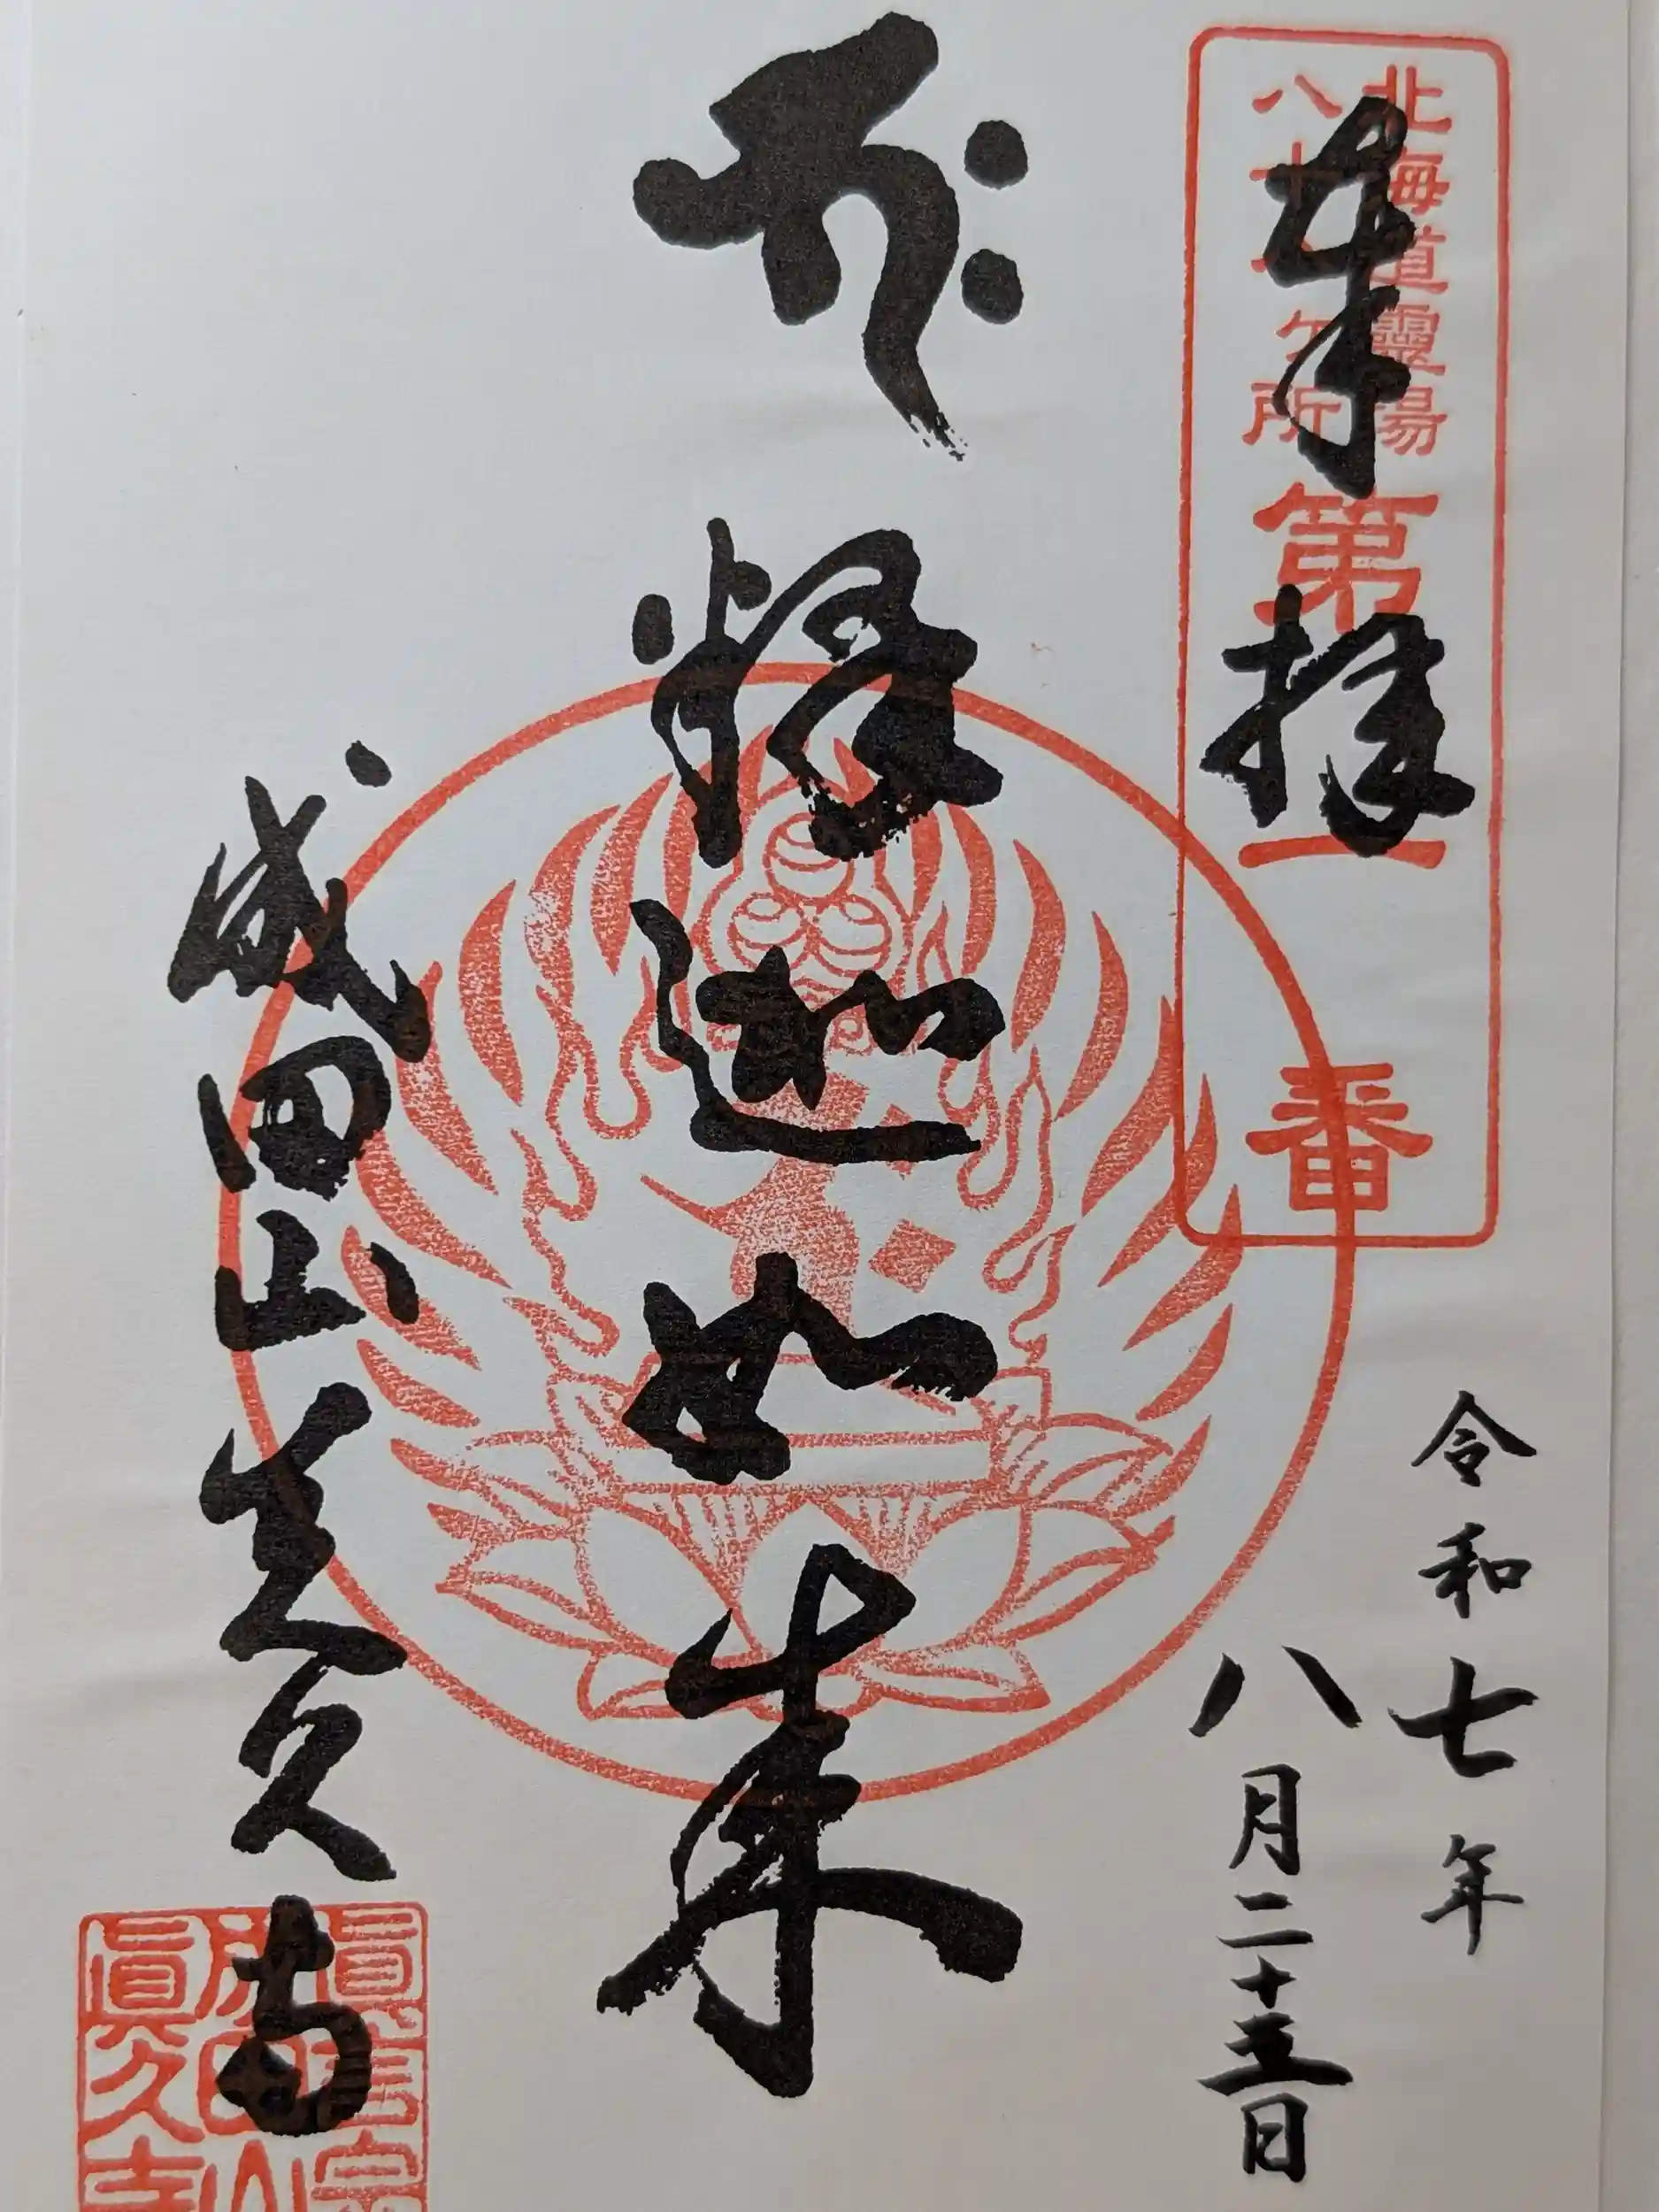 北海道靈場
八十八ヶ所
第一番
奉拝
令和七年
八月二十五日
भः
釋迦如来
成田山真久寺
眞言宗
成田山
眞久寺